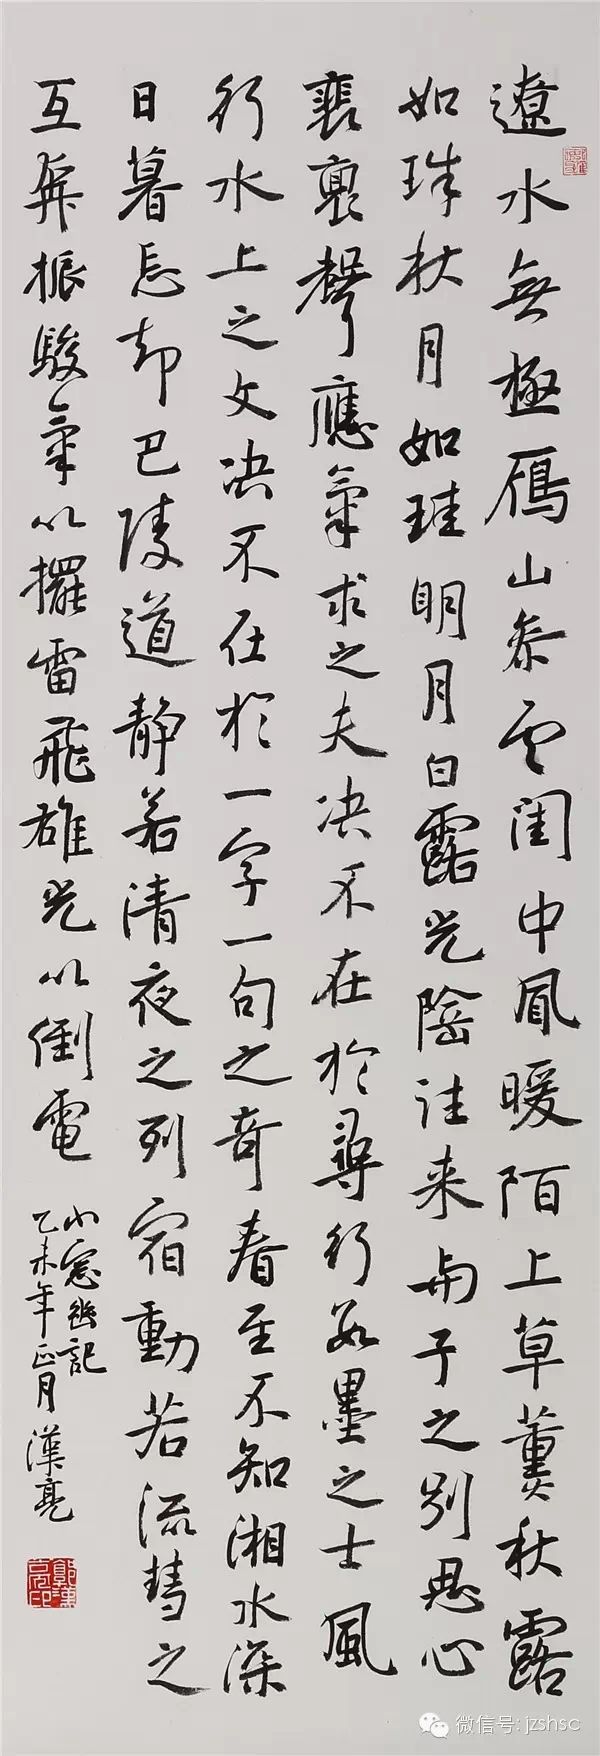 遼水無極雁山參雲閨中風暖陌上草薰秋露
如珠秋月如珪明月白露光陰往来與子之別思心
裴裏聲應氣求之夫决不在於尋行數墨之士風
行水上之文决不在於一字一句之奇春至不知湘水深
日暮忘却巴陵道静若清夜之列宿動若流彗之
互奔振駿氣以擺雷飛雄光以倒電
小窓幽記
乙未年正月漢亮
微信号:jzshsc